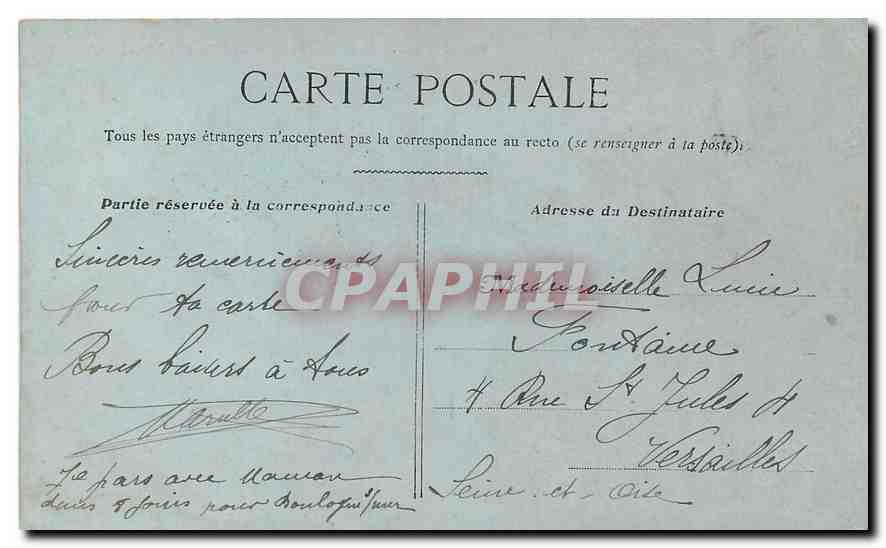 CARTE POSTALE
Tous les pays étrangers n'acceptent pas la correspondance au recto (se renseigner à la poste).
Partie réservée à la correspondance
Sincères remerciements
pour ta carte
Bons baisers à tous
Je pars avec Maman
dans 8 jours pour Boulogne s/mer
Adresse du Destinataire
Mademoiselle Lucie
Fontaine
4 Rue St Jules 4
Versailles
Seine-et-Oise
CPAPHIL